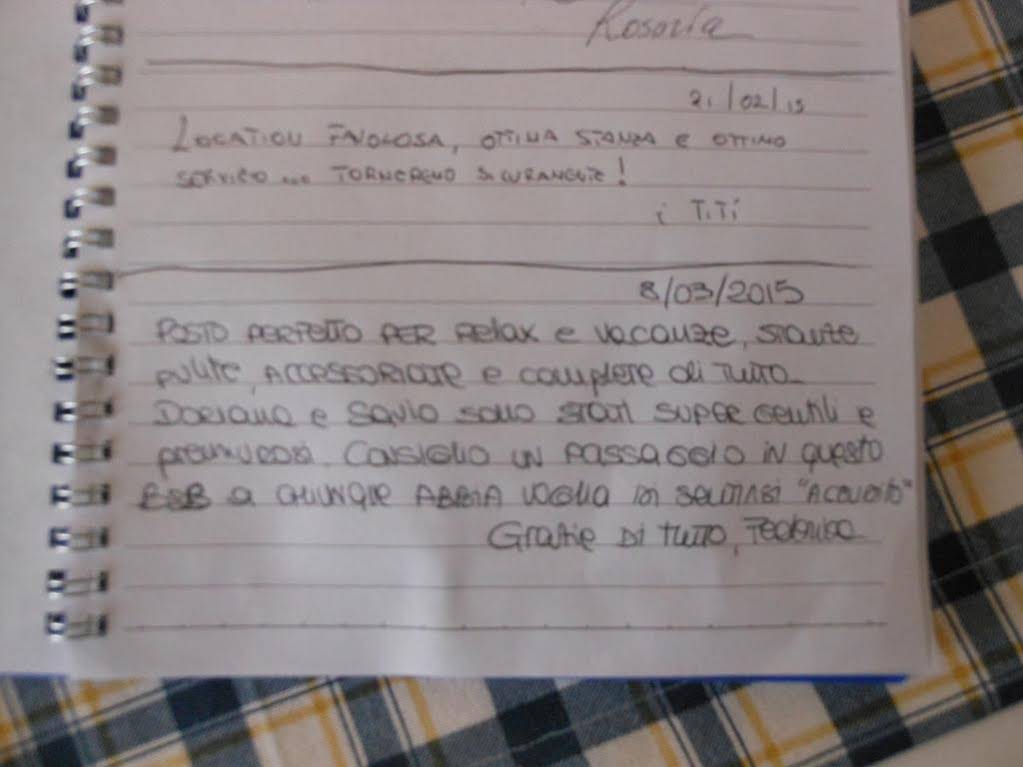 Rosaria
21/02/15
LOCATION FAVOLOSA, OTTIMA STANZA E OTTIMO
SERVIZIO ... TORNEREMO SICURAMENTE!
i TiTi
8/03/2015
POSTO PERFETTO PER Relax e vacanze, stanze
pulite, ACCESSORIATE e complete di tutto.
Doriana e Savio sono stati super gentili e
premurosi. Consiglio un passaggio in questo
B&B a CHIUNQUE ABBIA VOGLIA di sentirsi "Accolto"
Grazie Di Tutto, Federica